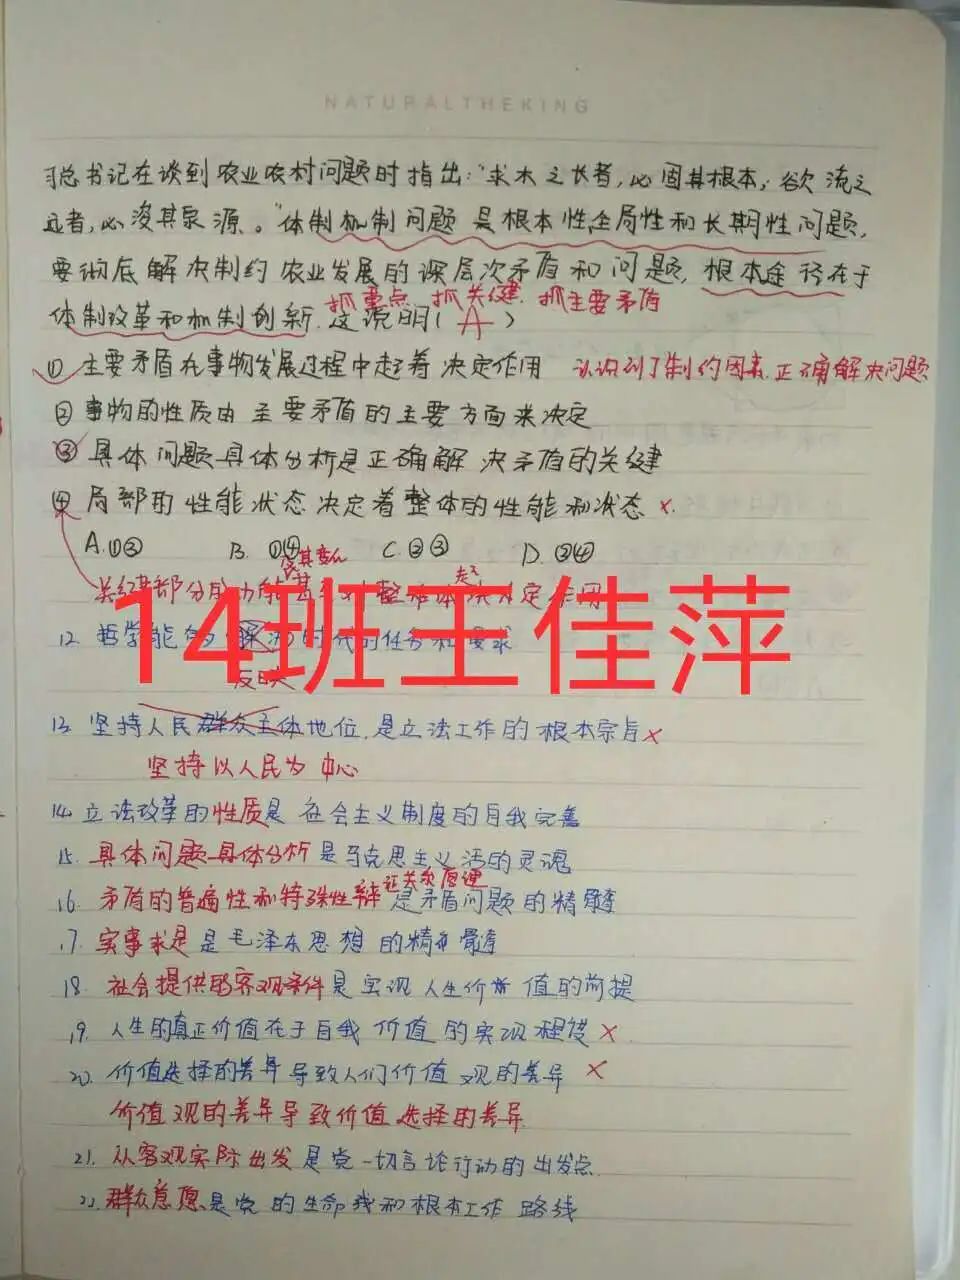 NATURALTHEKING
习总书记在谈到农业农村问题时指出:“求木之长者,必固其根本;欲流之
远者,必浚其泉源。”体制机制问题是根本性全局性和长期性问题,
要彻底解决制约农业发展的深层次矛盾和问题,根本途径在于
抓重点 抓关键 抓主要矛盾
体制改革和机制创新.这说明(A)
① 主要矛盾在事物发展过程中起着决定作用 认识到了制约因素.正确解决问题
② 事物的性质由主要矛盾的主要方面来决定
③ 具体问题具体分析是正确解决矛盾的关键
④ 局部的性能状态决定着整体的性能和状态 ×.
A.①③ B.①④ C.②③ D.②④
及其变化
关键部分的功能 整体 起 决定作用
14班王佳萍
12. 哲学能 时代的任务和要求
反映
13. 坚持人民群众主体地位.是立法工作的根本宗旨×
坚持以人民为中心
14. 立法改革的性质是社会主义制度的自我完善
15. 具体问题具体分析是马克思主义活的灵魂
证关系原理
16. 矛盾的普遍性和特殊性辩是矛盾问题的精髓
17. 实事求是是毛泽东思想的精髓
18. 社会提供的客观条件是实现人生价值的前提
19. 人生的真正价值在于自我价值的实现程度 ×
20. 价值选择的差异导致人们价值观的差异 ×
价值观的差异导致价值选择的差异
21. 从客观实际出发是党一切言论行动的出发点
22. 群众意愿是党的生命线和根本工作路线